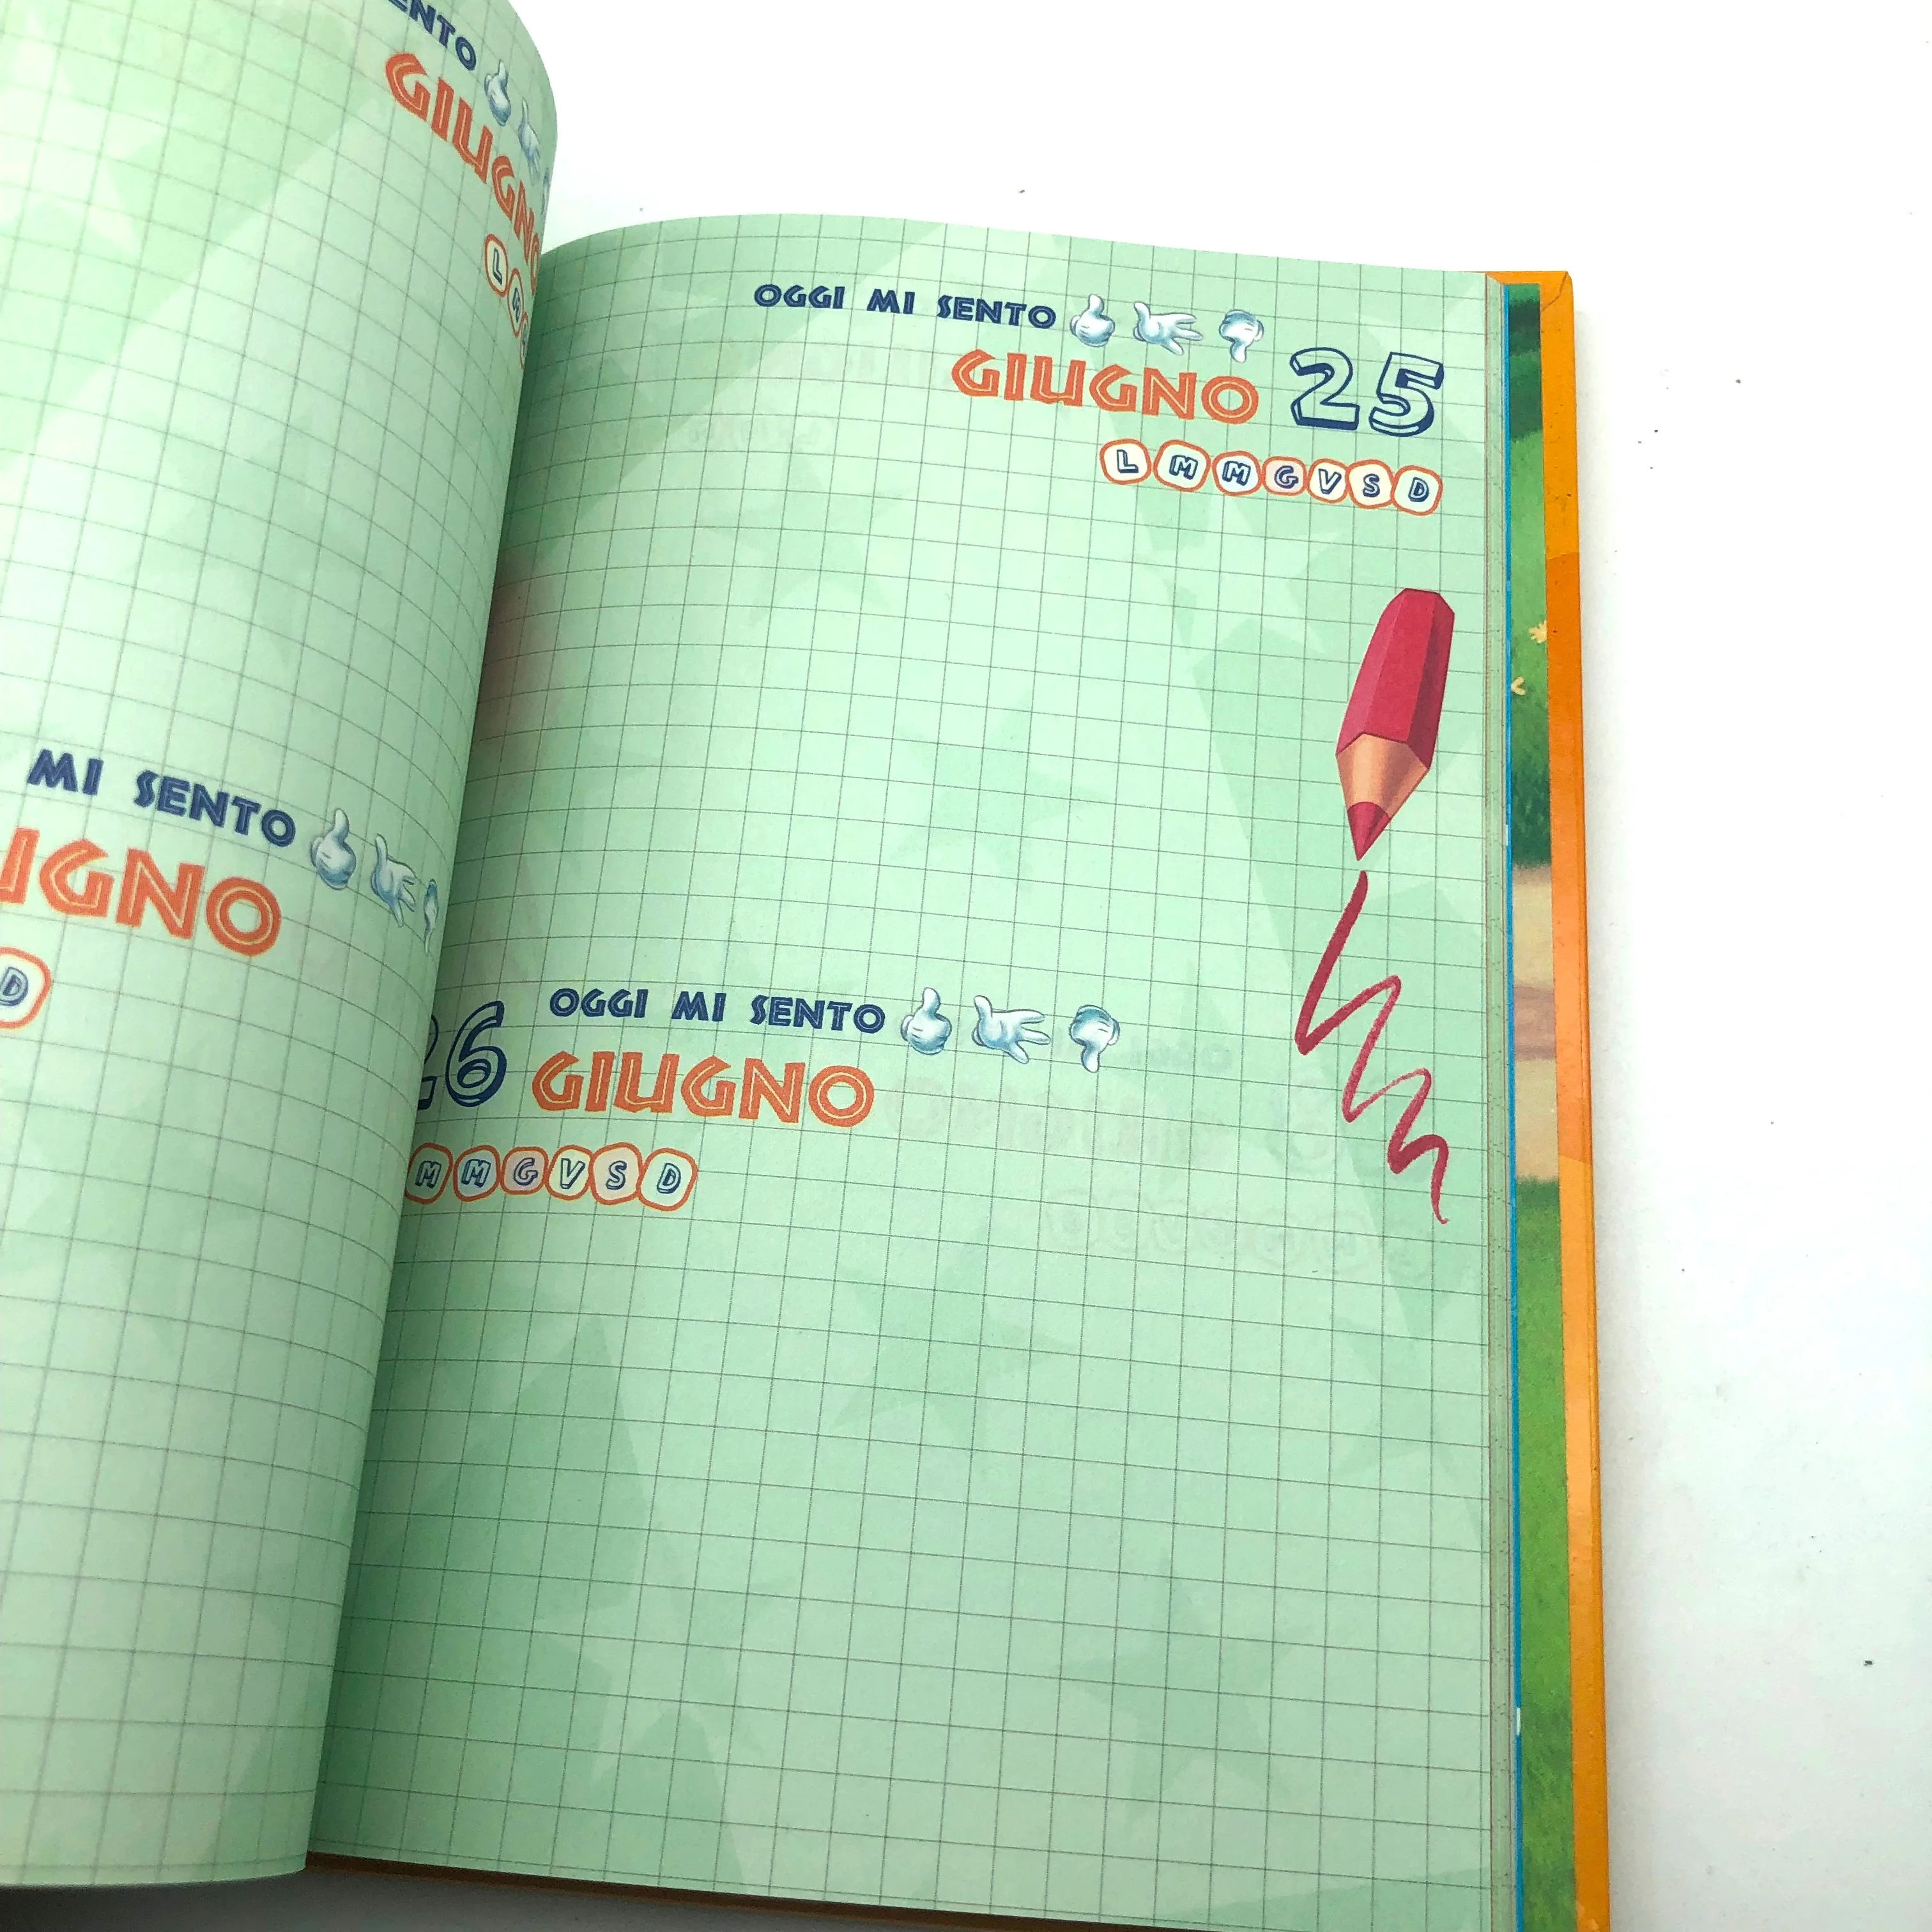 SENTO
GIUGNO
L M
MI SENTO
GNO
D
OGGI MI SENTO
GIUGNO 25
L M M G V S D
26 OGGI MI SENTO
GIUGNO
M M G V S D